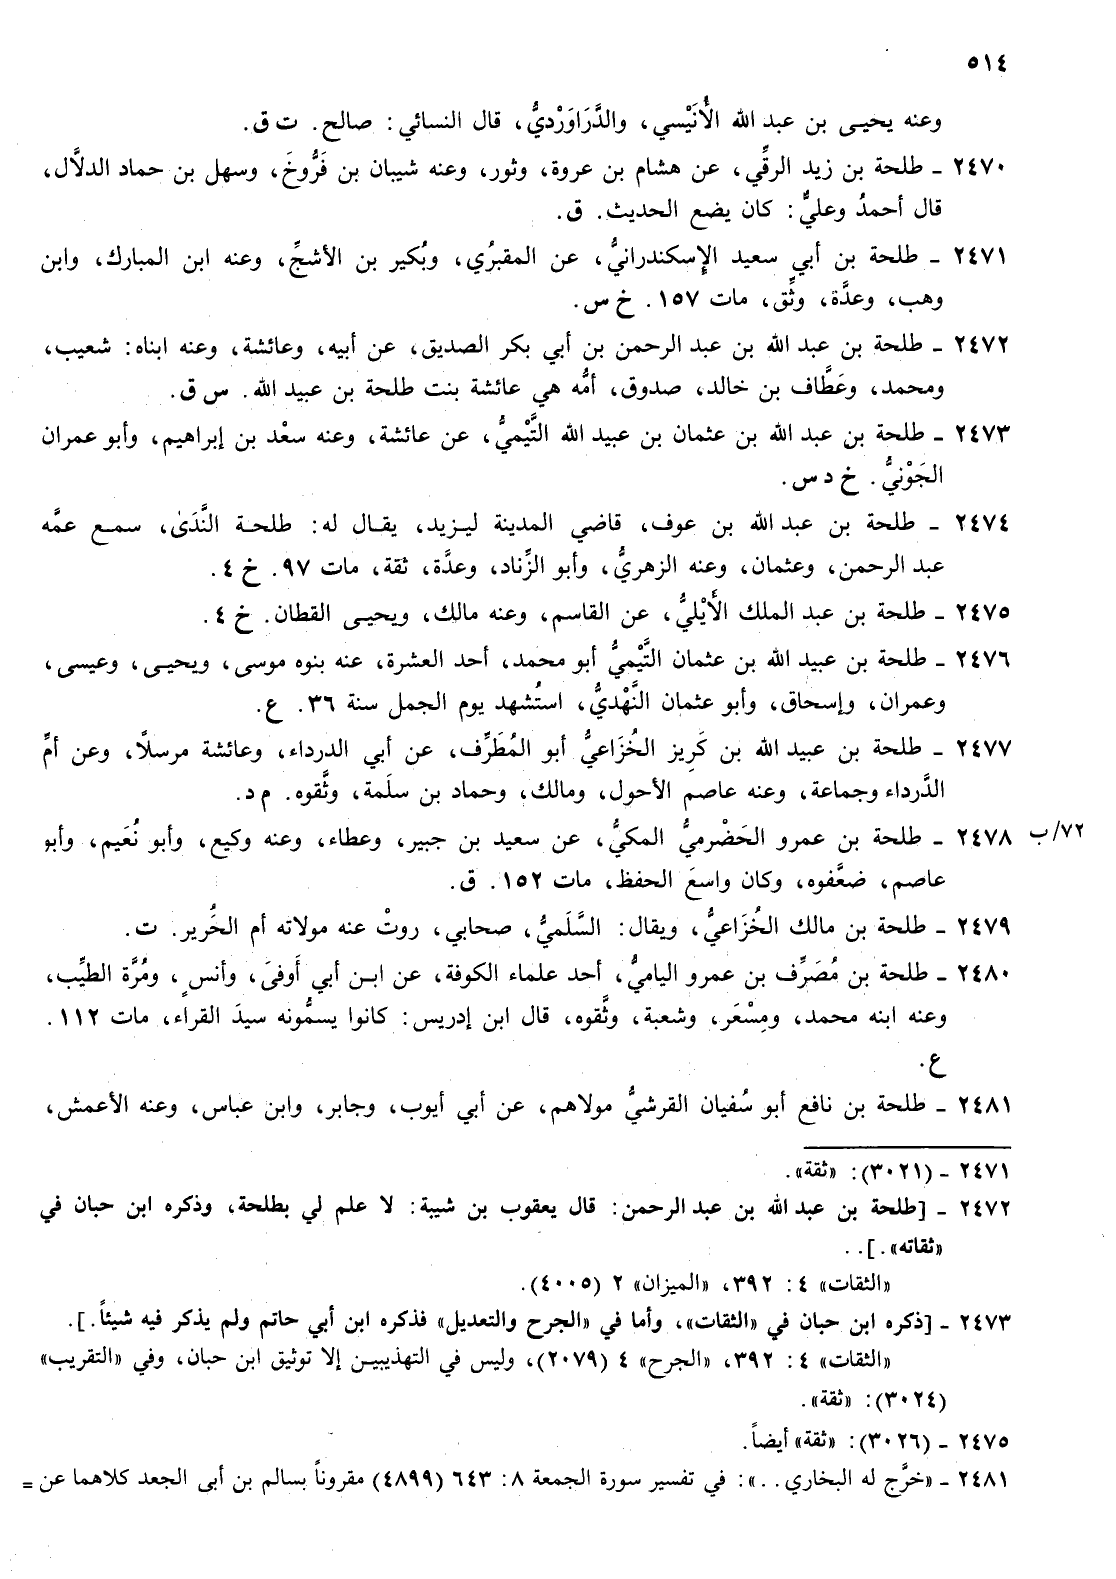 ٥١٤
وعنه يحيـى بن عبد الله الأُنَيْسي، والدَّرَاوَرْديُّ، قال النسائي: صالح. ت ق.
٢٤٧٠ ـ طلحة بن زيد الرقِّي، عن هشام بن عروة، وثور، وعنه شيبان بن فَرُّوخَ، وسهل بن حماد الدلاَّل،
قال أحمدُ وعليٌّ: كان يضع الحديث. ق.
٢٤٧١ ـ طلحة بن أبي سعيد الإِسكندرانيُّ، عن المقبرُي، وبُكير بن الأشجِّ، وعنه ابن المبارك، وابن
وهب، وعدَّة، وثِّق، مات ١٥٧. خ س.
٢٤٧٢ ـ طلحة بن عبد الله بن عبد الرحمن بن أبي بكر الصديق، عن أبيه، وعائشة، وعنه ابناه: شعيب،
ومحمد، وعَطَّاف بن خالد، صدوق، أمُّه هي عائشة بنت طلحة بن عبيد الله. س ق.
٢٤٧٣ ـ طلحة بن عبد الله بن عثمان بن عبيد الله التَّيْميُّ، عن عائشة، وعنه سعْد بن إبراهيم، وأبو عمران
الجَوْنيُّ. خ د س.
٢٤٧٤ ـ طلحة بن عبد الله بن عوف، قاضي المدينة ليـزيد، يقـال له: طلحـة النَّدَىٰ، سمـع عمَّه
عبد الرحمن، وعثمان، وعنه الزهريُّ، وأبو الزِّناد، وعدَّة، ثقة، مات ٩٧. خ ٤.
٢٤٧٥ ـ طلحة بن عبد الملك الأَيْليُّ، عن القاسم، وعنه مالك، ويحيـى القطان. خ ٤.
٢٤٧٦ ـ طلحة بن عبيد الله بن عثمان التَّيْميُّ أبو محمد، أحد العشرة، عنه بنوه موسى، ويحيـى، وعيسى،
وعمران، وإسحاق، وأبو عثمان النَّهْديُّ، استُشهد يوم الجمل سنة ٣٦. ع.
٢٤٧٧ ـ طلحة بن عبيد الله بن كَرِيز الخُزَاعيُّ أبو المُطَرِّف، عن أبي الدرداء، وعائشة مرسلًا، وعن أمِّ
الدَّرداء وجماعة، وعنه عاصم الأحول، ومالك، وحماد بن سلَمة، وثَّقوه. م د.
٢٤٧٨ ـ طلحة بن عمرو الحَضْرميُّ المكيُّ، عن سعيد بن جبير، وعطاء، وعنه وكيع، وأبو نُعَيم، وأبو
٧٢/ب
عاصم، ضعَّفوه، وكان واسعَ الحفظ، مات ١٥٢. ق.
٢٤٧٩ ـ طلحة بن مالك الخُزَاعيُّ، ويقال: السَّلَميُّ، صحابي، روتْ عنه مولاته أم الحُرير. ت.
٢٤٨٠ ـ طلحة بن مُصَرِّف بن عمرو الياميُّ، أحد علماء الكوفة، عن ابـن أبي أَوفىٰ، وأنسٍ، ومُرَّة الطيِّب،
وعنه ابنه محمد، ومِسْعَر، وشعبة، وثَّقوه، قال ابن إدريس: كانوا يسمُّونه سيدَ القراء، مات ١١٢.
ع.
٢٤٨١ ـ طلحة بن نافع أبو سُفيان القرشيُّ مولاهم، عن أبي أيوب، وجابر، وابن عباس، وعنه الأعمش،
٢٤٧١ ـ (٣٠٢١): «ثقة».
٢٤٧٢ ـ [طلحة بن عبد الله بن عبد الرحمن: قال يعقوب بن شيبة: لا علم لي بطلحة، وذكره ابن حبان في
«ثقاته».]..
«الثقات» ٤: ٣٩٢، «الميزان» ٢ (٤٠٠٥).
٢٤٧٣ ـ [ذكره ابن حبان في «الثقات»، وأما في «الجرح والتعديل» فذكره ابن أبي حاتم ولم يذكر فيه شيئاً.].
«الثقات» ٤: ٣٩٢، «الجرح» ٤ (٢٠٧٩)، وليس في التهذيبيـن إلا توثيق ابن حبان، وفي «التقريب»
(٣٠٢٤): «ثقة».
٢٤٧٥ ـ (٣٠٢٦): «ثقة» أيضاً.
٢٤٨١ ـ «خرَّج له البخاري..»: في تفسير سورة الجمعة ٨: ٦٤٣ (٤٨٩٩) مقروناً بسالم بن أبى الجعد كلاهما عن =